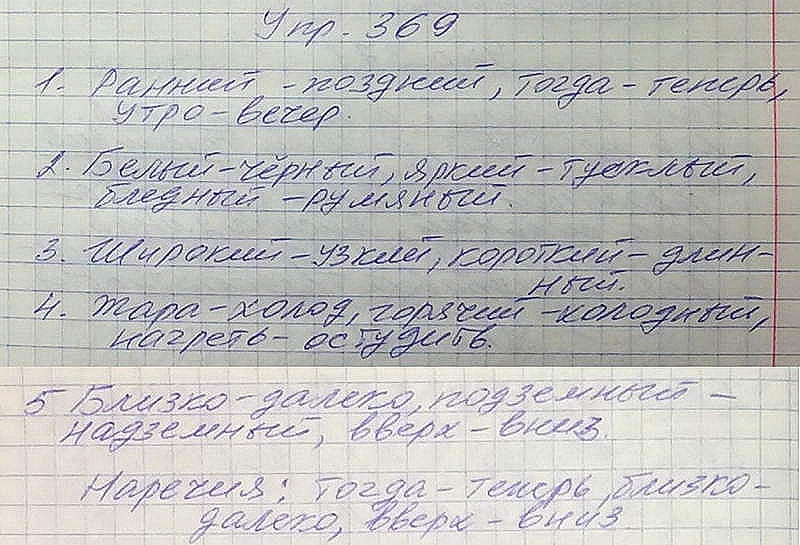 Упр. 369
1. Ранний - поздний, тогда - теперь,
утро - вечер.
2. Белый - чёрный, яркий - тусклый,
бледный - румяный.
3. Широкий - узкий, короткий - длин-
ный.
4. Жара - холод, горячий - холодный,
нагреть - остудить.
5 Близко - далеко, подземный -
надземный, вверх - вниз.
Наречия: тогда - теперь, близко -
далеко, вверх - вниз